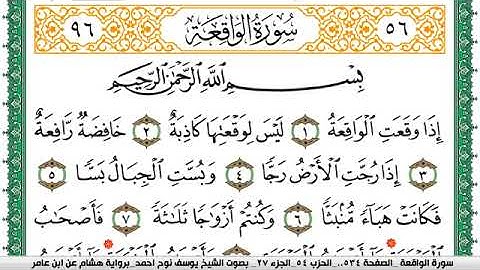 ٥٦ سُورَةُ الوَاقِعَةِ ٩٦
بِسْمِ اللَّهِ الرَّحْمَٰنِ الرَّحِيمِ
إِذَا وَقَعَتِ الْوَاقِعَةُ ١ لَيْسَ لِوَقْعَتِهَا كَاذِبَةٌ ٢ خَافِضَةٌ رَّافِعَةٌ
٣ إِذَا رُجَّتِ الْأَرْضُ رَجًّا ٤ وَبُسَّتِ الْجِبَالُ بَسًّا ٥
فَكَانَتْ هَبَاءً مُّنۢبَثًّا ٦ وَكُنتُمْ أَزْوَاجًا ثَلَاثَةً ٧ فَأَصْحَابُ
سورة الواقعة _الصفحة ٥٣٤...الحزب ٥٤_الجزء ٢٧_ بصوت الشيخ يوسف نوح احمد_برواية هشام عن ابن عامر